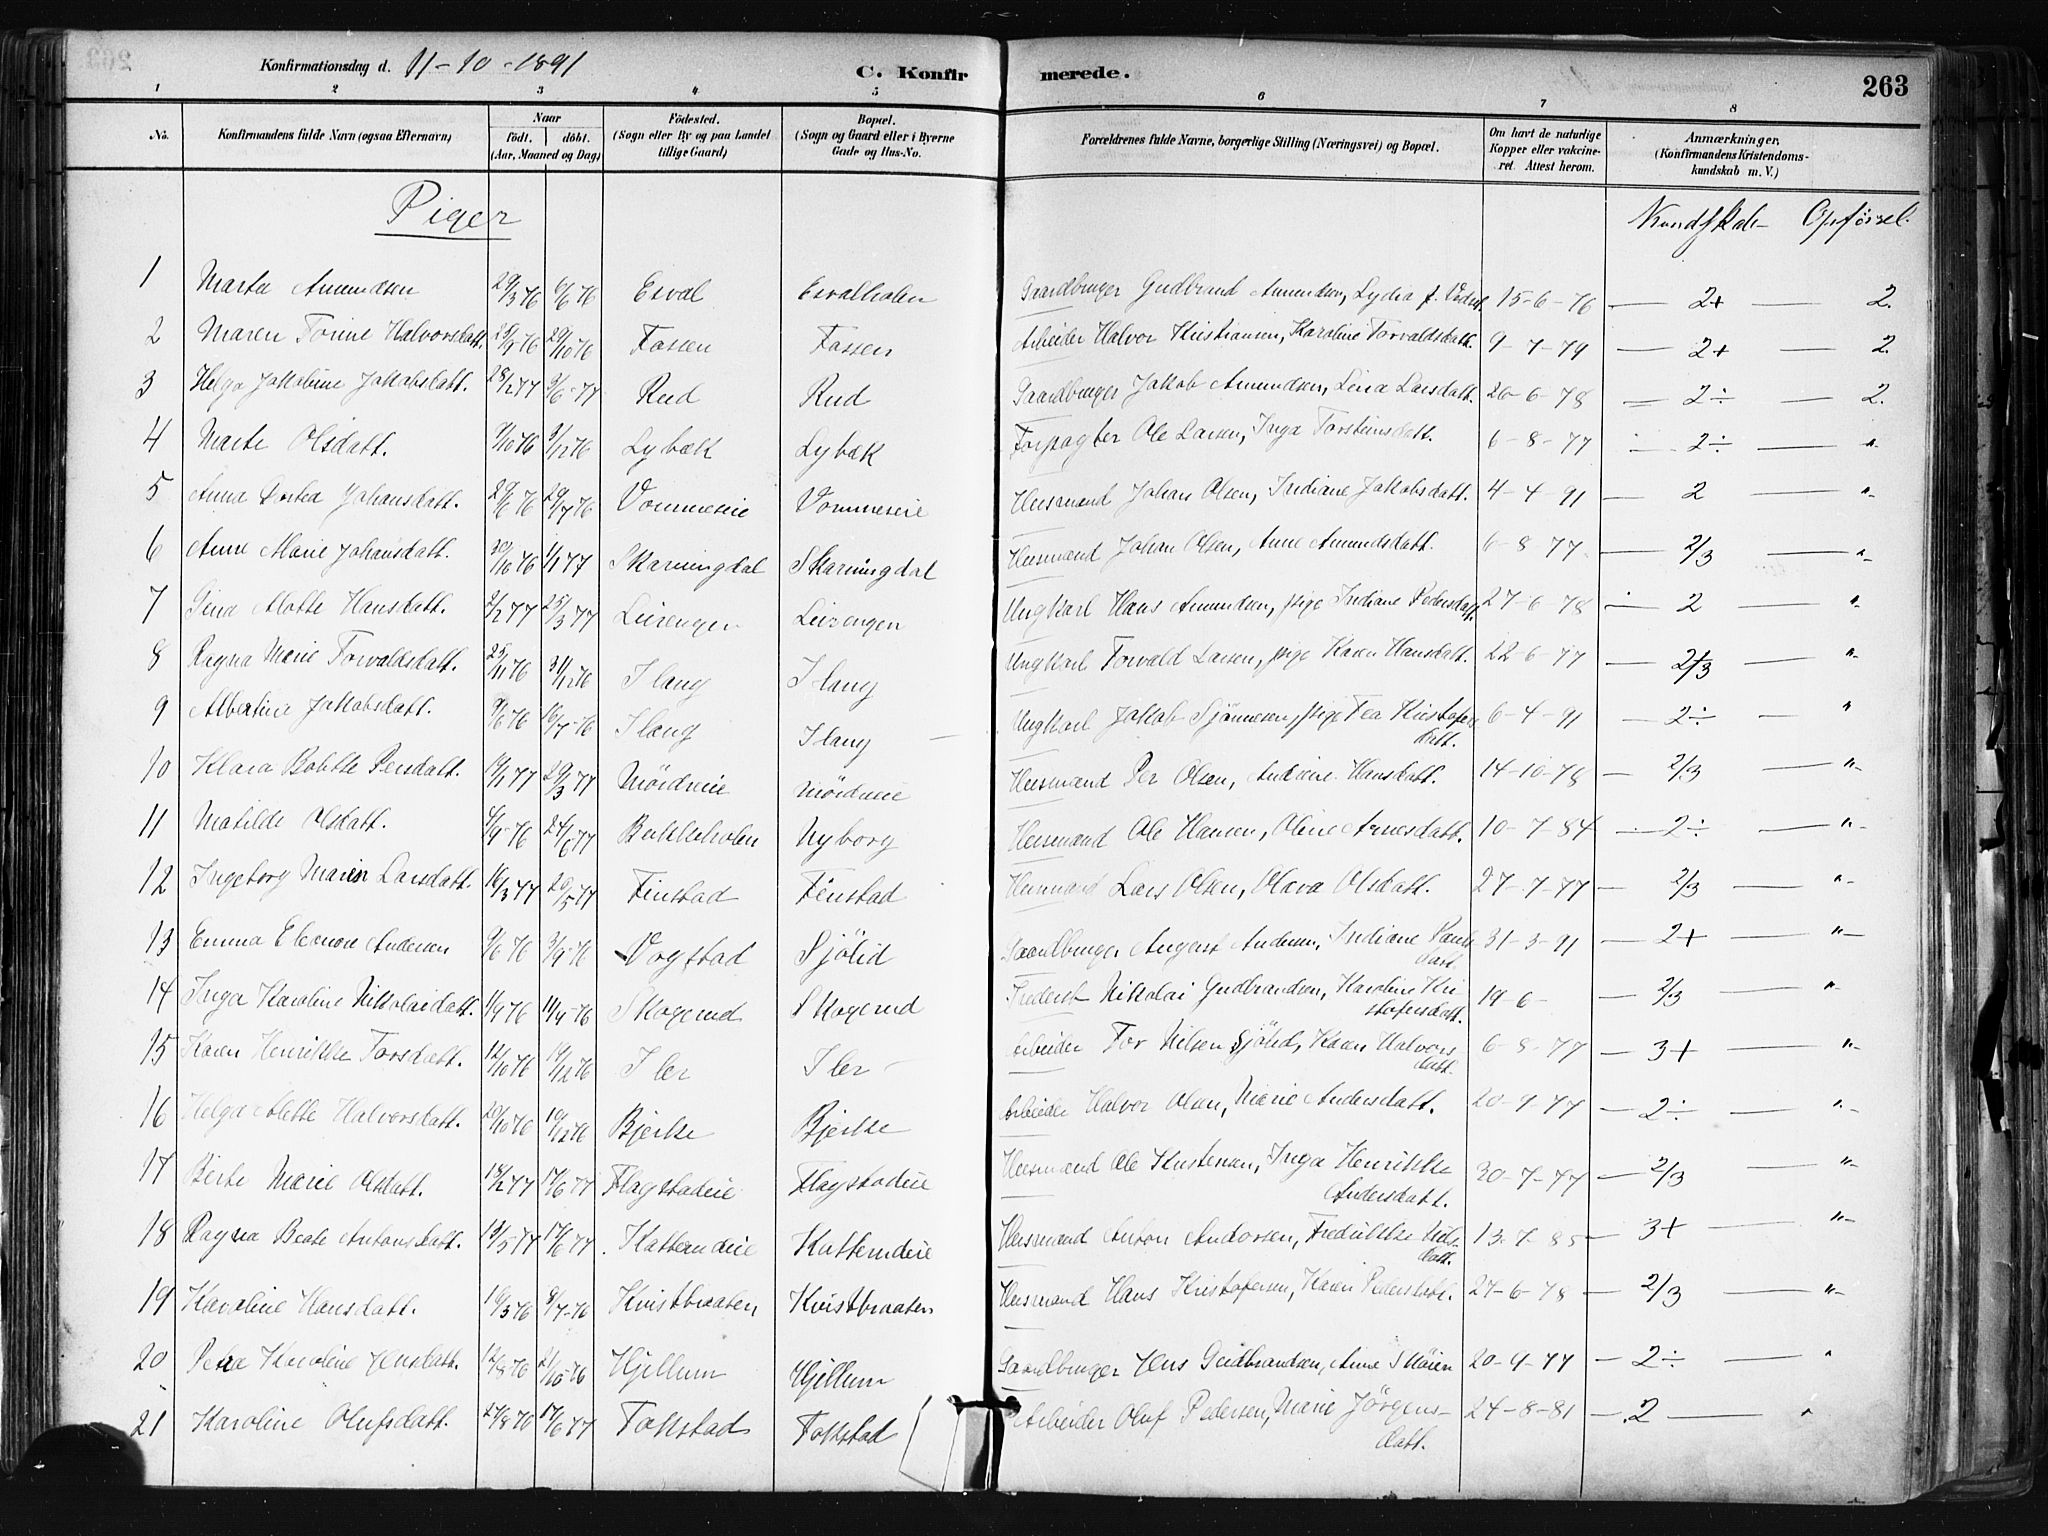 263
Konfirmationsdag d. 11-10-1891 C. Konfirmerede.
1 2 3 4 5 6 7 8
No. Konfirmandens fulde Navn (ogsaa Efternavn) Naar født. døbt. (Aar, Maaned og Dag) Fødested. (Sogn eller By og paa Landet tillige Gaard) Bopæl. (Sogn og Gaard eller i Byerne Gade og Hus-No. Forældrenes fulde Navne, borgerlige Stilling (Næringsvei) og Bopæl. Om havt de naturlige Kopper eller vakcineret. Attest herom. Anmærkninger, (Konfirmandens Kristendomskundskab m. V.)
Piger Kundskab Opførsel.
1 Marta Amundsen 29/3 76 6/6 76 Esval Esvalholen Gaardbruger Gudbrand Amundsen, Lydia f. 15-6-76 — 2+ — 2.
2 Maren Torine Halvorsdatt. 29/10 76 Fossen Fossen Arbeider Halvor Kristiansen, Karoline Torvaldsdatt. 9-7-79 — 2+ — 2.
3 Helga Jakobine Jakobsdatt. 28/2 77 3/6-77 Rud Rud Gaardbruger Jakob Amundsen, Lina Larsdatt. 20-6-78 — 2÷ — 2.
4 Marte Olsdatt. 9/10 76 3/12 76 Lybæk Lybæk Forpagter Ole Larsen, Inga Torstensdatt. 6-8-77 2÷ — "
5 Anna Dortea Johansdatt. 29/6 76 29/7 76 Vommeseie Vommeseie Husmand Johan Olsen, Indiane Jakobsdatt. 4-4-91 — 2 — "-
6 Anne Marie Johansdatt. 30/10 76 1/1 77 Skarningdal Skarningdal Husmand Johan Olsen, Anne Amundsdatt. 6-8-77 — 2/3 — "
7 Gina Alotte Hansdatt. 2/2 77 25/3 77 Leirengen Leirengen Ungkarl Hans Amundsen, pige Indiane Pedersdatt. 27-6-78 2 — "-
8 Ragna Marie Torvaldsdatt. 25/11 76 31/12 76 Ilang Ilang Ungkarl Torvald Larsen, pige Karen Hansdatt. 22-6-77 — 2/3 — "-
9 Albertine Jakobsdatt. 9/6 76 16/7-76 Ilang Ilang Ungkarl Jakob Sjønnesen, pige Tea Kristofersdatt. 6-4-91 — 2÷ — "
10 Klara Bolette Persdatt. 14/1 77 29/3 77 Mørdreeie Mørdreeie Husmand Per Olsen, Andrine Hansdatt. 14-10-78 — 2/3 — "-
11 Matilde Olsdatt. 4/9-76 24/6 77 Bakkeholen Nyborg Husmand Ole Hansen, Oline Arnesdatt. 10-7-84 2÷ — "-
12 Ingeborg Marie Larsdatt. 16/3 77 20/5 77 Finstad Finstad Husmand Lars Olsen, Olava Olsdatt. 27-7-77 — 2/3 — "-
13 Emma Eleonore Andersen 9/6 76 3/9-76 Vogstad Sjølid Gaardbruger August Andersen, Indiane 31-3-91 — 2+ — "-
14 Inga Karoline Nikolaidatt. 1/9 76 Skogrud Skogrud Nikolai Gudbrandsen, Karoline Kristofersdatt. 19-6- — 2/3 — "-
15 Karen Henrikke Torsdatt. 12/10 76 Iler Iler Arbeider Tor Nilsen Sjølid, Karen Halvorsdatt. 6-8-77 — 3+ — "-
16 Helga Alette Halvorsdatt. 20/10 76 10/12 76 Bjerke Bjerke Arbeider Halvor Olsen, Marie Andersdatt. 20-9-77 — 2÷ — "-
17 Berte Marie Olsdatt. 18/2 77 17/6 77 Flagstadeie Flagstadeie Husmand Ole Kristensen, Inga Henrikke Andersdatt. 30-7-77 — 2/3 — "-
18 Ragna Beate Antonsdatt. 13/5 77 17/6 77 Kattemdeie Kattemdeie Husmand Anton Andersen, Fredrikke Nilsdatt. 13-7-85 — 3+ — "-
19 Karoline Hansdatt. 16/3 76 8/7-76 Kvistbraaten Kvistbraaten Husmand Hans Kristofersen, Karen Pedersdatt. 27-6-78 — 2/3 — "-
20 Petra Karoline Jensdatt. 12/8-76 21/10-76 Hjellum Hjellum Gaardbruger Jens Gudbrandsen, Anne Skøien 20-9-77 — 2÷ — "
21 Karoline Olufsdatt. 27/8 76 17/6 77 Tokstad Tokstad Arbeider Oluf Pedersen, Marie Jørgensdatt. 24-8-81 — 2 — "